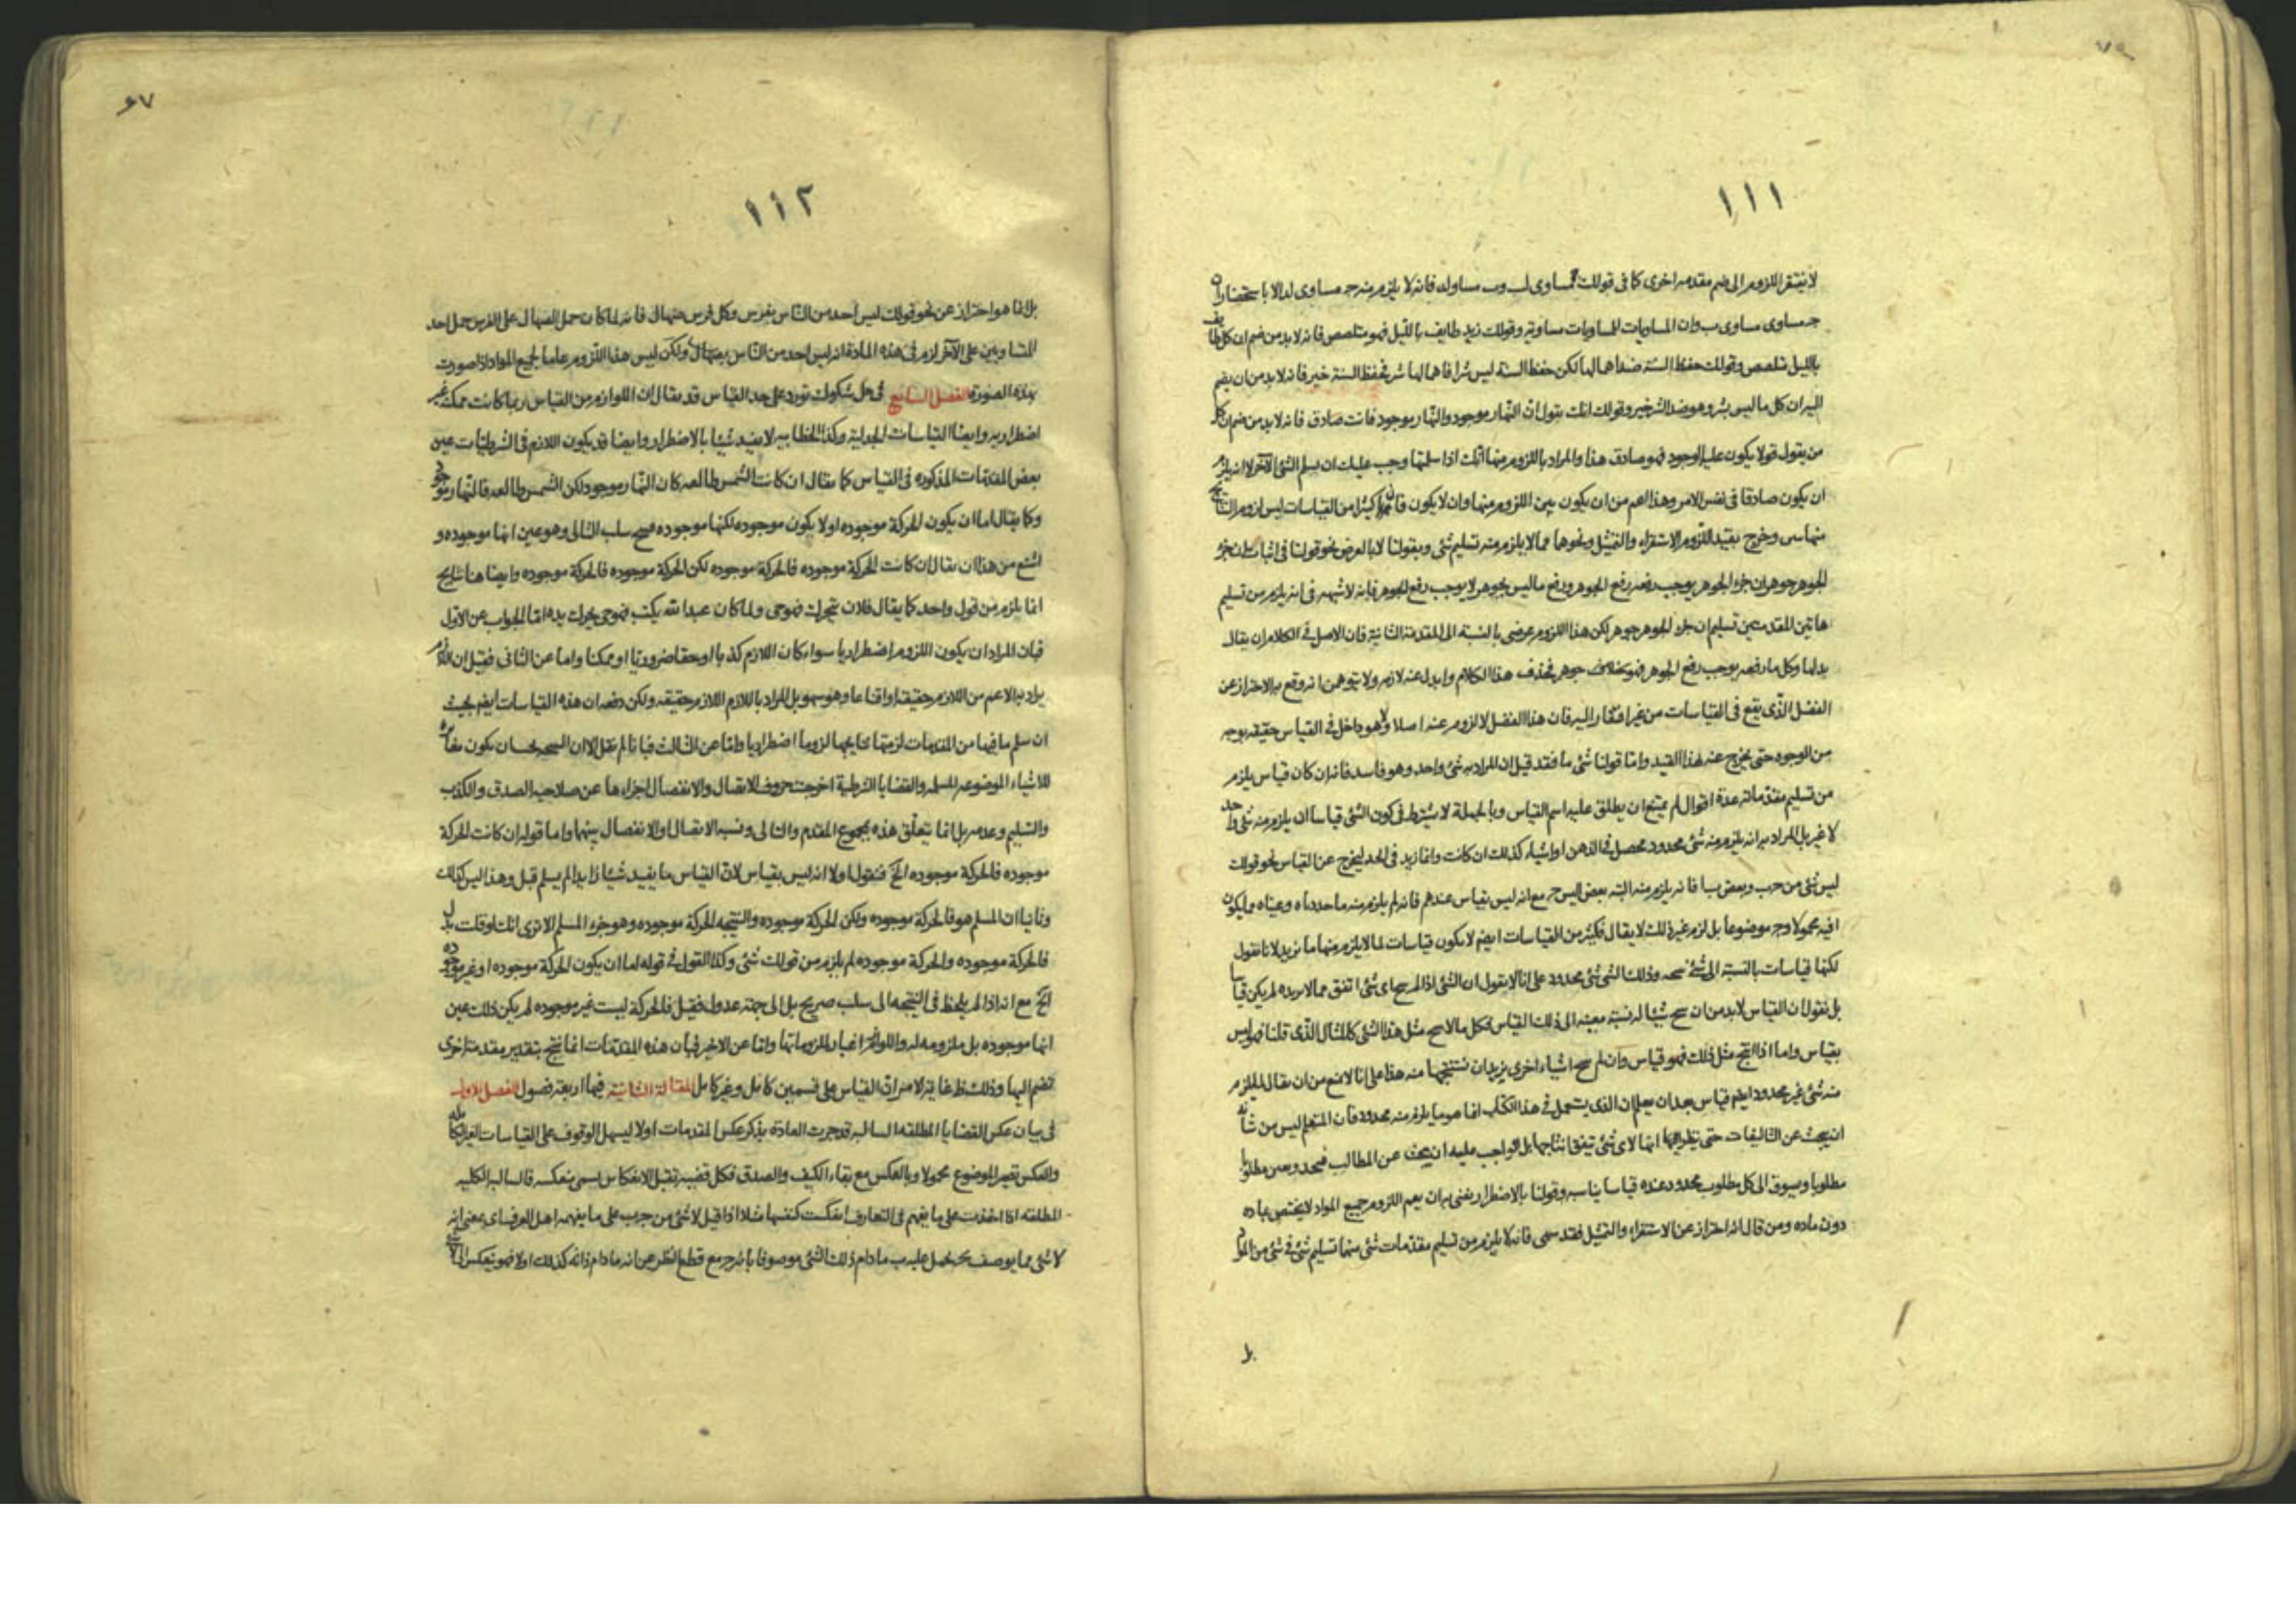 ١١١
لا يفتقر اللزوم الى ضم مقدمه اخرى كما فى قولك ج مساوى لب وب مساو لد فانه لا يلزم منه ج مساوى لد الا باستحضار ان
ج مساوى مساوى ب وان المساويات للمساويات مساوية وقولك زيد طايف بالليل فهو متلصص فانه لا بد من ضم ان كل طايف
بالليل متلصص وقولك حفظ السنة ليس شرا فانه لا بد من ان يضم
اليه ان كل ما ليس بشر وهو ضد الشر خير وقولك انك تقول ان النهار موجود والنهار موجود فانت صادق فانه لا بد من ضم ان كل
من يقول قولا يكون عليه الوجود فهو صادق هذا والمراد باللزوم منها انك اذا سلمتها وجب عليك ان تسلم الشئ الآخر لا انه يلزم
ان يكون صادقا فى نفس الامر وهذا اعم من ان يكون بين اللزوم منها وان لا يكون فان كثيرا من القياسات ليس لزوم النتايج
منها وخرج بقيد اللزوم الاستقراء والتمثيل ونحوها مما لا يلزم منه تسليم شئ وبقولنا لا بالعرض نحو قولنا فى اثبات ان جزء
الجوهر جوهر ان جزء الجوهر يوجب رفعه رفع الجوهر ورفع ما ليس بجوهر لا يوجب رفع الجوهر فانه لا شبهه فى انه يلزم من تسليم
هاتين المقدمتين تسليم ان جزء الجوهر جوهر لكن هذا اللزوم عرضى بالنسبة الى المقدمة الثانية فان الاصل فى الكلام ان يقال
بدلها وكل ما رفعه يوجب رفع الجوهر فهو جوهر فحذف هذا الكلام وابدل عنه لازمه ولا يتوهمن انه وقع به الاحتراز عن
الفضل الذى يقع فى القياسات من غير افتقار اليه فان هذا الفضل لا لزوم عنه اصلا ولا هو داخل فى القياس حقيقة بوجه
من الوجوه حتى يخرج عنه بهذا القيد واما قولنا شئ ما فقد قيل ان المراد به شئ واحد وهو فاسد فانه ان كان قياس يلزم
من تسليم مقدماته عدة اقوال لم يمتنع ان يطلق عليه اسم القياس وبالجملة لا يشترط فى كون الشئ قياسا ان يلزم منه شئ واحد
لا غير بل المراد به انه يلزم منه شئ محدود محصل فى الذهن او اشياء كذلك ان كانت وانما زيد فى الحد ليخرج عن القياس نحو قولك
ليس شئ من ج ب وبعض ب ا فانه يلزم منه البتة بعض ا ليس ج مع انه ليس بقياس عندهم فانه لم يلزم منه ما حددناه وعيناه وليكون
ا فيه محمولا وج موضوعا بل لزم غير ذلك لا يقال فكثير من القياسات ايضا لا يكون قياسات لما لا يلزم منها ما نريد لانا نقول
لكنها قياسات بالنسبة الى شئ وذلك الشئ شئ محدود على انا لا نقول ان الشئ اذا لم ينتج اى شئ اتفق مما لا نريده لم يكن قياسا
بل نقول ان القياس لا بد من ان ينتج شيئا له نسبة معينه الى ذلك القياس فكل ما لا ينتج مثل هذا الشئ كالمثال الذى قلنا فهو ليس
بقياس واما اذا انتج مثل ذلك فهو قياس وان لم ينتج اشياء اخرى يريد ان نستنتجها منه هذا على انا لا نمنع من ان يقال لما يلزم
منه شئ غير محدود ايضا قياس بعد ان يعلم ان الذى يستعمل فى هذا الكتاب انما هو ما يلزم منه محدود فان المتعلم ليس من شانه
ان يبحث عن التاليفات حتى ينظر فيها انها لاى شئ تيفق انتاجها بل الواجب عليه ان يبحث عن المطالب فيحد ويعين مطلوبا
مطلوبا ويسوق الى كل مطلوب محدود عنده قياسا يناسبه وقولنا بالاضطرار يعنى به ان يعم اللزوم جميع المواد لا يختص بماده
دون ماده ومن قال انه احتراز عن الاستقراء والتمثيل فقد سهى فانه لا يلزم من تسليم مقدمات شئ منها تسليم شئ فى شئ من المواد
بل
٦٧
١١٢
بل انما هو احتراز عن نحو قولك ليس احد من الناس بفرس وكل فرس صهال فانه لما كان حمل الصهال على الفرس حمل احد
المتساويين على الآخر لزم فى هذه المادة انه ليس احد من الناس بصهال ولكن ليس هذا اللزوم عاما لجميع المواد اذا صورت
بهذه الصورة الفصل السابع فى حل شكوك تورد على حد القياس قد يقال ان اللوازم من القياس ربما كانت ممكنه غير
اضطراريه وايضا القياسات الجدلية وكذا الخطابيه لا يفيد شيئا بالاضطرار وايضا قد يكون اللازم فى الشرطيات عين
بعض المقدمات المذكوره فى القياس كما يقال ان كانت الشمس طالعه كان النهار موجود لكن الشمس طالعه فالنهار موجود
وكما يقال اما ان يكون الحركة موجوده او لا يكون موجوده لكنها موجوده فينتج سلب التالى وهو عين انها موجوده و
اشنع من هذا ان يقال ان كانت الحركة موجوده فالحركة موجوده لكن الحركة موجوده فالحركة موجوده وايضا هنا نتايج
انما يلزم من قول واحد كما يقال فلان يتحرك فهو حى ولما كان عبد الله يكتب فهو يحرك يده اما الجواب عن الاول
فبان المراد ان يكون اللزوم اضطراريا سواء كان اللازم كذبا او حقا ضروريا او ممكنا واما عن الثانى فقيل ان اللازم
يراد به الاعم من اللازم حقيقة او اقناعا وهو سهو بل المراد باللازم اللازم حقيقه ولكن دفعه ان هذه القياسات ايضا بحيث
ان سلم ما فيها من المقدمات لزمتها نتايجها لزوما اضطراريا واما عن الثالث فبانا لم نقل الا ان النتيجه يجب ان يكون مغايره
للاشياء الموضوعه المسلمه والقضايا الشرطية اخرجت حروف الاتصال والانفصال اجزاءها عن صلاحيه الصدق والكذب
والتسليم وعدمه بل انما يتعلق هذه بمجموع المقدم والتالى ونسبه الاتصال او الانفصال بينهما واما قوله ان كانت الحركة
موجوده فالحركة موجوده الخ فنقول اولا انه ليس بقياس لان القياس ما يفيد شيئا زايدا لم يسلم قبل وهذا ليس كذلك
وثانيا ان المسلم هو فالحركة موجوده ولكن الحركة موجوده والنتيجه الحركة موجوده وهو جزء المسلم الا ترى انك لو قلت بدل
فالحركة موجوده والحركة موجوده لم يلزم من قولك شئ وكذا القول فى قوله اما ان يكون الحركة موجوده او غير موجوده
الخ مع انه اذا لم يلحظ فى النتيجه الى سلب صريح بل الى جهة عدول فقيل فالحركة ليست غير موجوده لم يكن ذلك عين
انها موجوده بل ملزومه له واللوازم اغيار لملزوماتها واما عن الاخير فبان هذه المقدمات انما ينتج بتقدير مقدمة اخرى
تضم اليها وذلك ظ غاية الامر ان القياس على قسمين كامل وغير كامل المقالة الثانية فيها اربعة فصول الفصل الاول
فى بيان عكس القضايا المطلقه السالبه قد جرت العادة بذكر عكس المقدمات اولا ليسهل الوقوف على القياسات الغير الكامله
والعكس تصير الموضوع محمولا وبالعكس مع بقاء الكيف والصدق فكل قضية تقبل الانعكاس يسمى منعكسه فالسالبه الكليه
المطلقه اذا اخذت على ما يفهم فى التعارف انعكست كنفسها مثلا اذا قيل لا شئ من ج ب على ما يفهمه اهل العرف اى بمعنى انه
لا شئ مما يوصف بج يحمل عليه ب ما دام ذلك الشئ موصوفا بانه ج مع قطع النظر عن انه ما دام ذاته كذلك اولا فهو ينعكس الى لا شئ